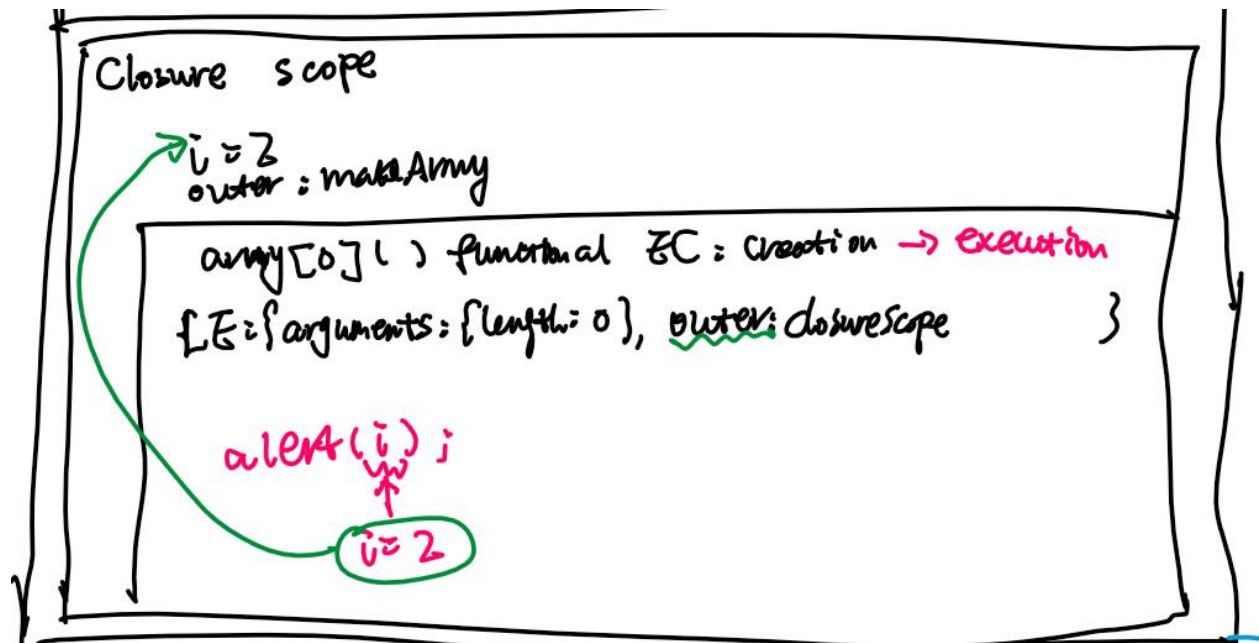 Closure scope
i = 2
outer : makeArray
array[0]( ) functional EC : creation → execution
{LE:{arguments:{length: 0}, outer: closureScope }
alert(i) ;
i = 2